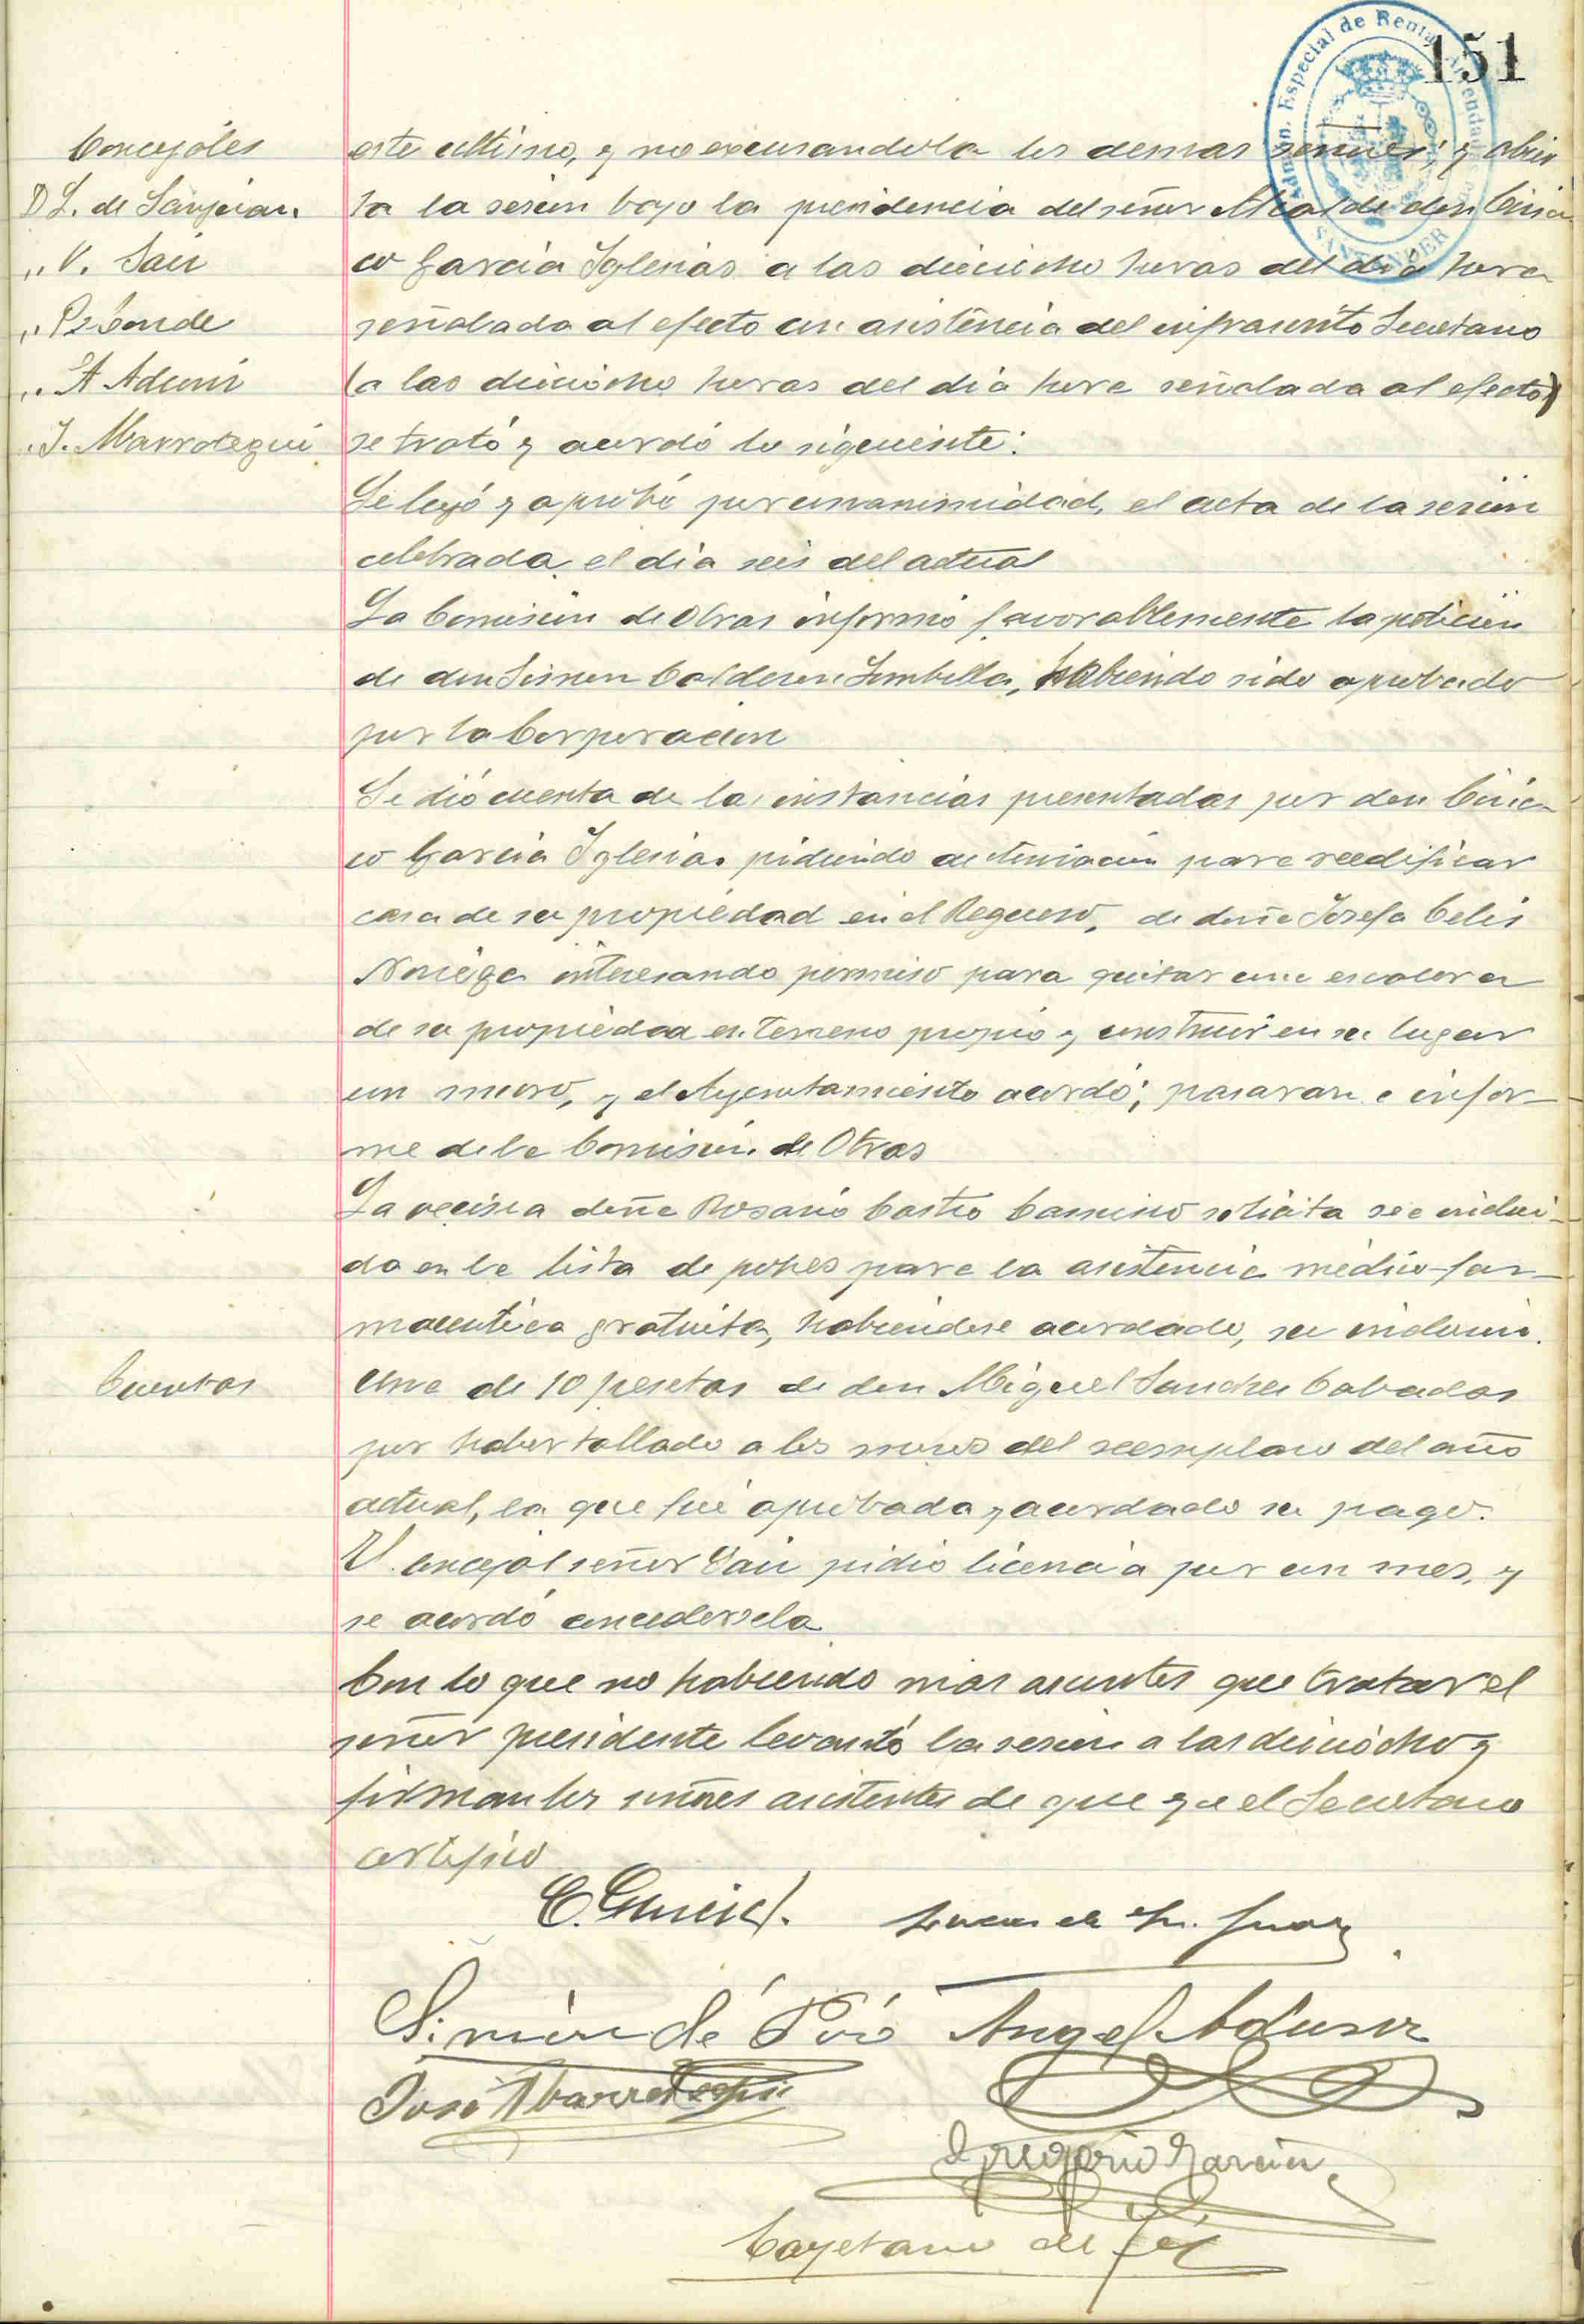 151
Admón. Especial de Rentas Arrendadas
SANTANDER
Concejales
D L. de Sanjuan.
,, V. Saiz
,, P. Conde
,, A Adunir
,, J. Marrotegui
este ultimo, y no excusandola los demas señores; y abier
ta la sesion bajo la presidencia del señor Alcalde don Ciria
co Garcia Iglesias a las dieciocho horas del dia hora
señalada al efecto con asistencia del infrascrito Secretario
(a las dieciocho horas del dia hora señalada al efecto)
se trató y acordó lo siguiente:
Se leyó y aprobó por unanimidad, el acta de la sesión
celebrada el dia seis del actual
La Comision de Obras informó favorablemente la petición
de don Simon Calderon Lombilla, habiendo sido aprobado
por la Corporacion
Se dió cuenta de las instancias presentadas por don Ciria
co Garcia Iglesias pidiendo autorización para reedificar
casa de su propiedad en el Reguero, de doña Josefa Celis
Noriega interesando permiso para quitar una escalera
de su propiedad en terreno propio y construir en su lugar
un muro, y el Ayuntamiento acordó; pasaran a infor-
me de la Comision de Obras
La vecina doña Rosario Castro Camino solicita sea inclui-
da en la lista de pobres para la asistencia médico-far-
maceutica gratuita, habiendose acordado, su inclusion.
Cuentas
Una de 10 pesetas de don Miguel Sanchez Cabadas
por haber tallado a los mozos del reemplazo del año
actual, la que fué aprobada y acordado su pago.
El concejal señor Saiz pidió licencia por un mes, y
se acordó concedersela
Con lo que no habiendo mas asuntos que tratar el
señor presidente levantó la sesion a las dieciocho y
firman los señores asistentes de que yo el Secretario
certifico
C. Garcia I.
Lucas de Sn. Juan
Simón de Pió
Angel Adunir
José Marrotegui
Gregorio Garcia
Cayetano del